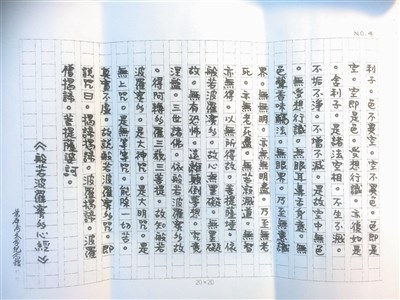 NO. 4
利子。色不異空。空不異色。色即是
空。空即是色。受想行識。亦復如是
。舍利子。是諸法空相。不生不滅。
不垢不淨。不增不減。是故空中無色
。無受想行識。無眼耳鼻舌身意。無
色聲香味觸法。無眼界。乃至無意識
界。無無明。亦無無明盡。乃至無老
死。亦無老死盡。無苦集滅道。無智
亦無得。以無所得故。菩提薩埵。依
般若波羅蜜多故。心無罣礙。無罣礙
故。無有恐怖。遠離顛倒夢想。究竟
涅盤。三世諸佛。依般若波羅蜜多故
。得阿耨多羅三藐三菩提。故知般若
波羅蜜多。是大神咒。是大明咒。是
無上咒。是無等等咒。能除一切苦。
真實不虛。故說般若波羅蜜多咒。即
說咒曰。揭諦揭諦。波羅揭諦。波羅
僧揭諦。菩提薩婆訶。
《般若波羅蜜多心經》
20×20